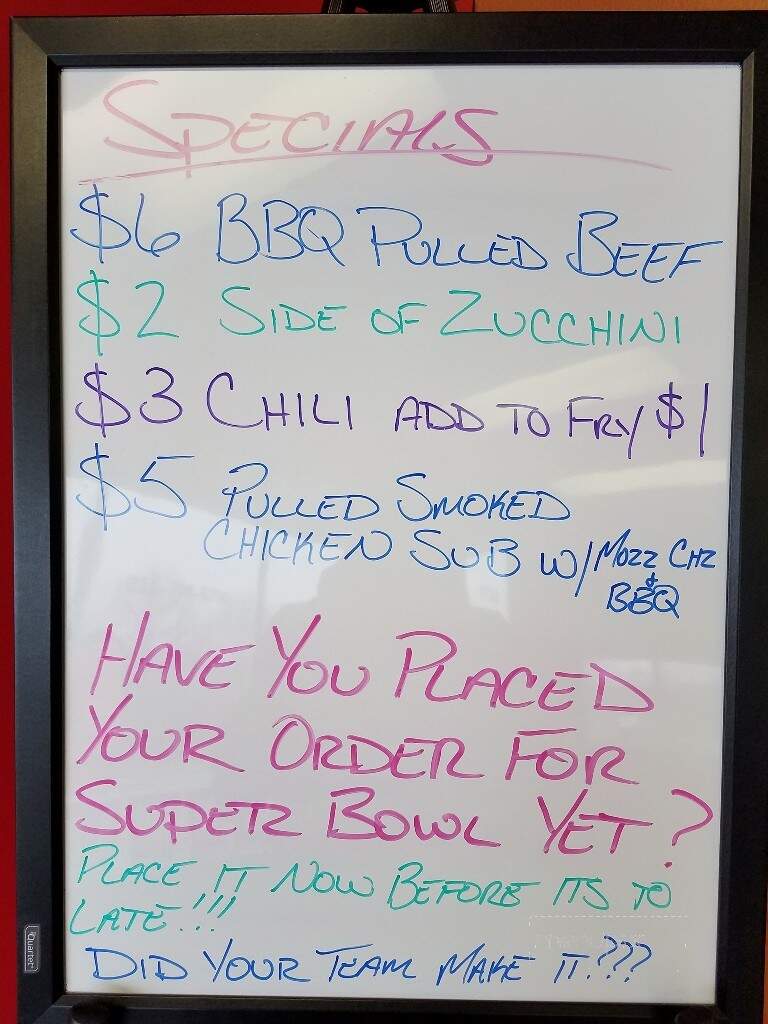 SPECIALS
$6 BBQ PULLED BEEF
$2 SIDE OF ZUCCHINI
$3 CHILI ADD TO FRY $1
$5 PULLED SMOKED
CHICKEN SUB W/ MOZZ CHZ
&
BBQ
HAVE YOU PLACED
YOUR ORDER FOR
SUPER BOWL YET?
PLACE IT NOW BEFORE ITS TO
LATE!!!
DID YOUR TEAM MAKE IT???
Quartet